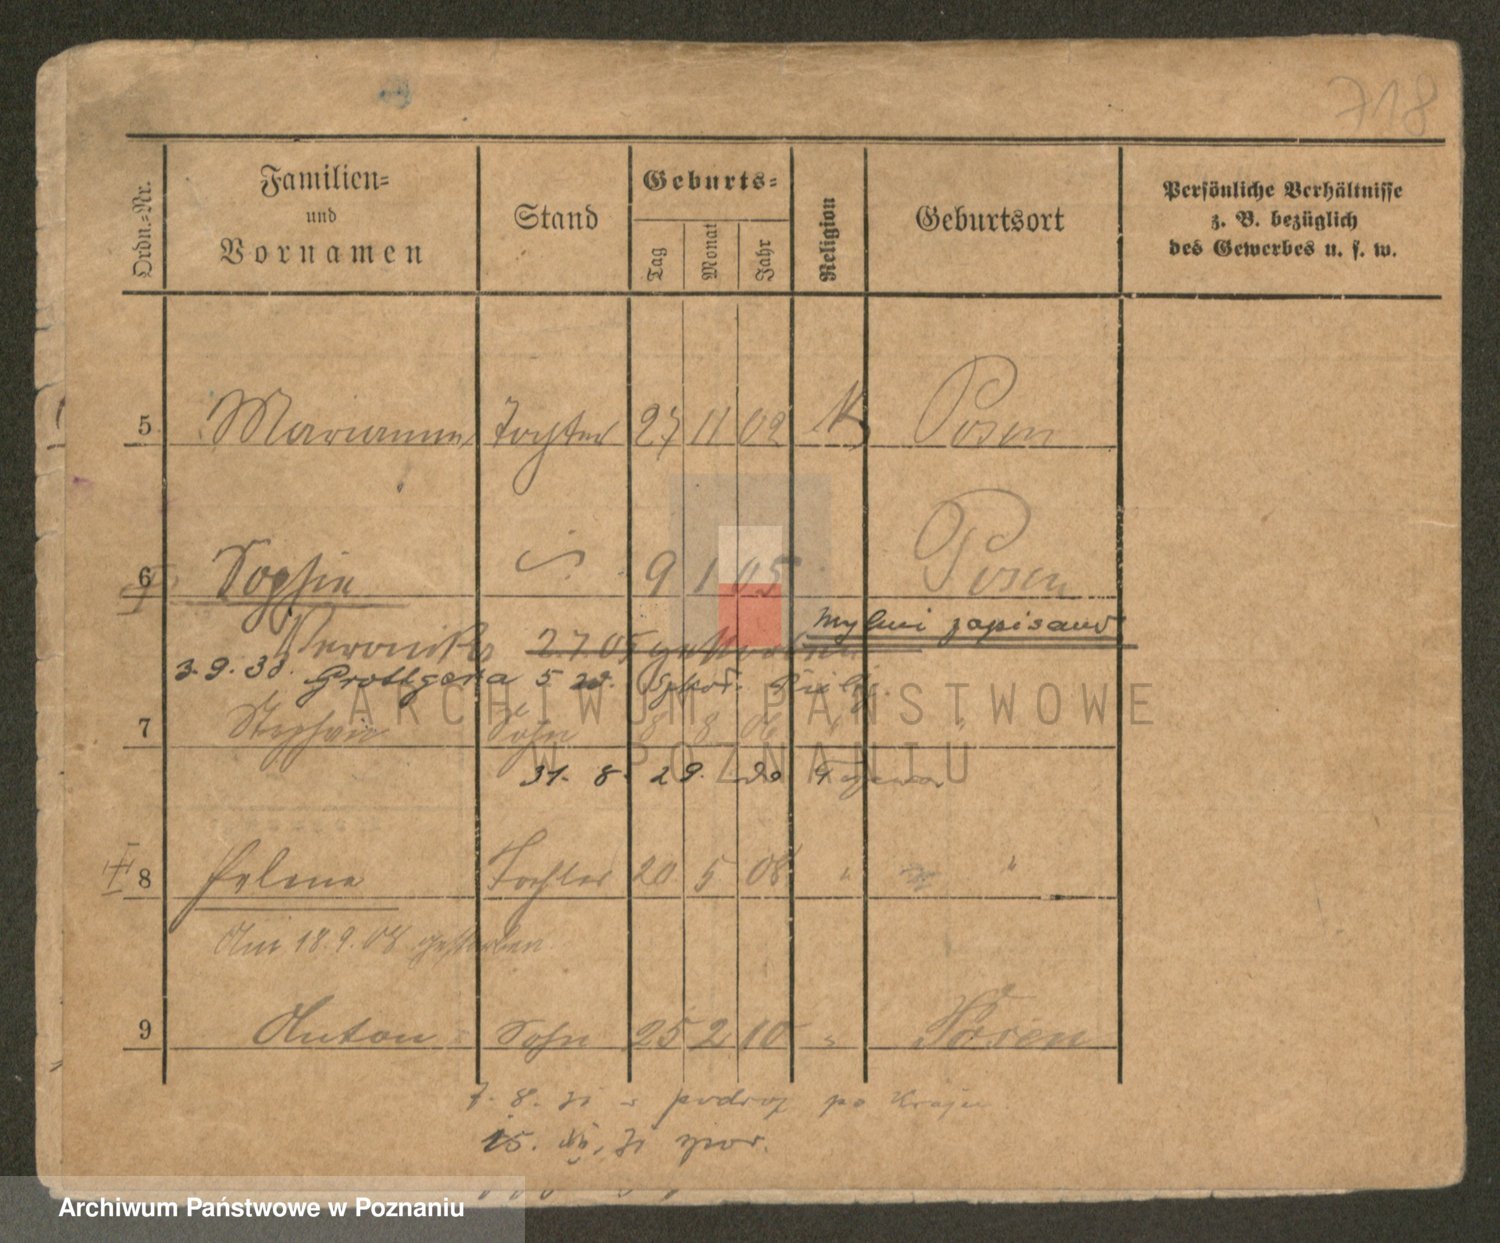 718
Ordn.-Nr.
Familien-
und
Vornamen
Stand
Geburts-
Tag
Monat
Jahr
Religion
Geburtsort
Persönliche Verhältnisse
z. B. bezüglich
des Gewerbes u. s. w.
5 Marianna Tochter 27 11 02 K Posen
6 Sophie 9 1 05 Posen
Veronika 27.05 Mylnie zapisano
3.9.38. Grottgera 5
7 Stephan Sohn 8 8 06 "
31. 8. 29. do
8 Helene Tochter 20 5 08 " "
Am 18.9.08 gestorben
9 Anton Sohn 25 2 10 " Posen
7. 8. 31 w podróż po kraju
15. 31
ARCHIWUM PAŃSTWOWE
W POZNANIU
Archiwum Państwowe w Poznaniu